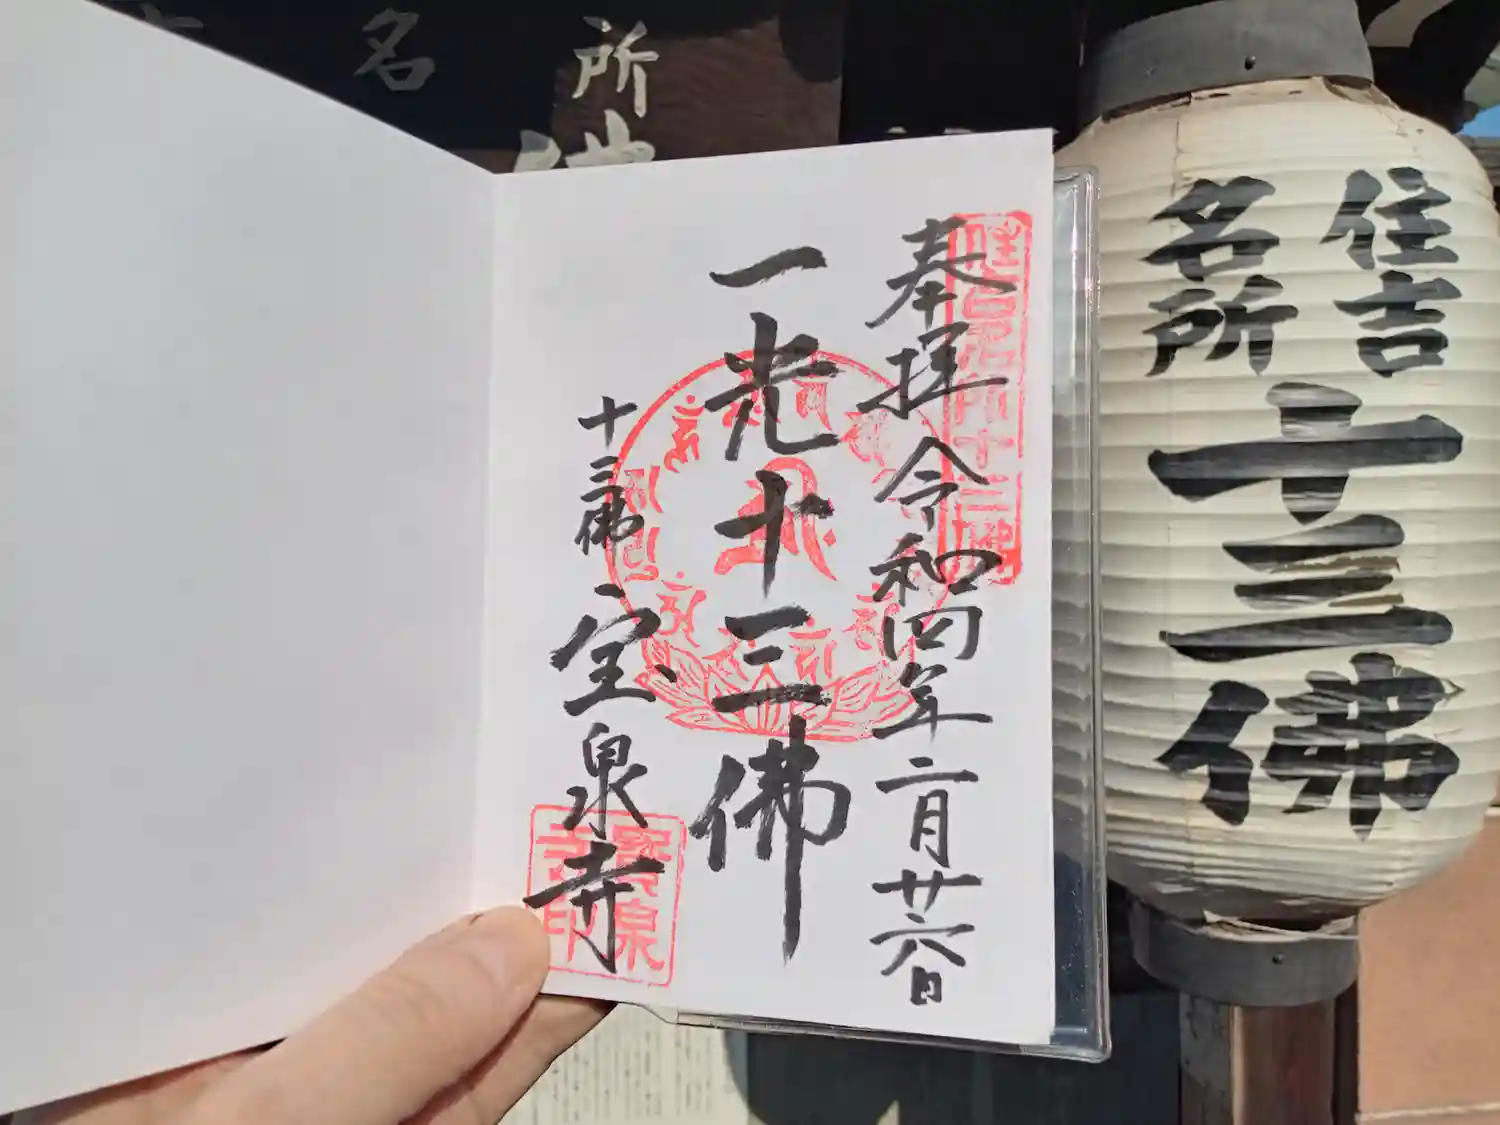 奉拝 令和四年二月廿六日
一光十三佛
十三佛 宝泉寺
住吉名所十三佛
住吉
名所
十三佛
名
所